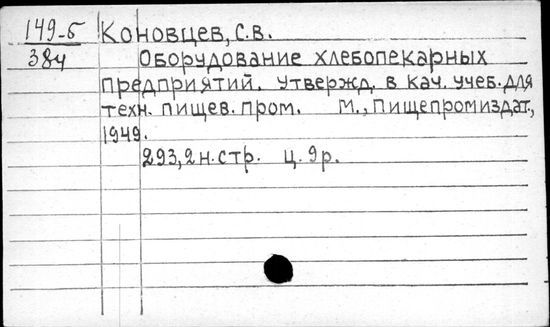 149-5 Коновцев, С.В.
384 Оборудование хлебопекарных
предприятий. Утвержд. в кач. учеб. для
техн. пищев. пром. М., Пищепромиздат,
1949.
293,2 н. стр. ц. 9 р.